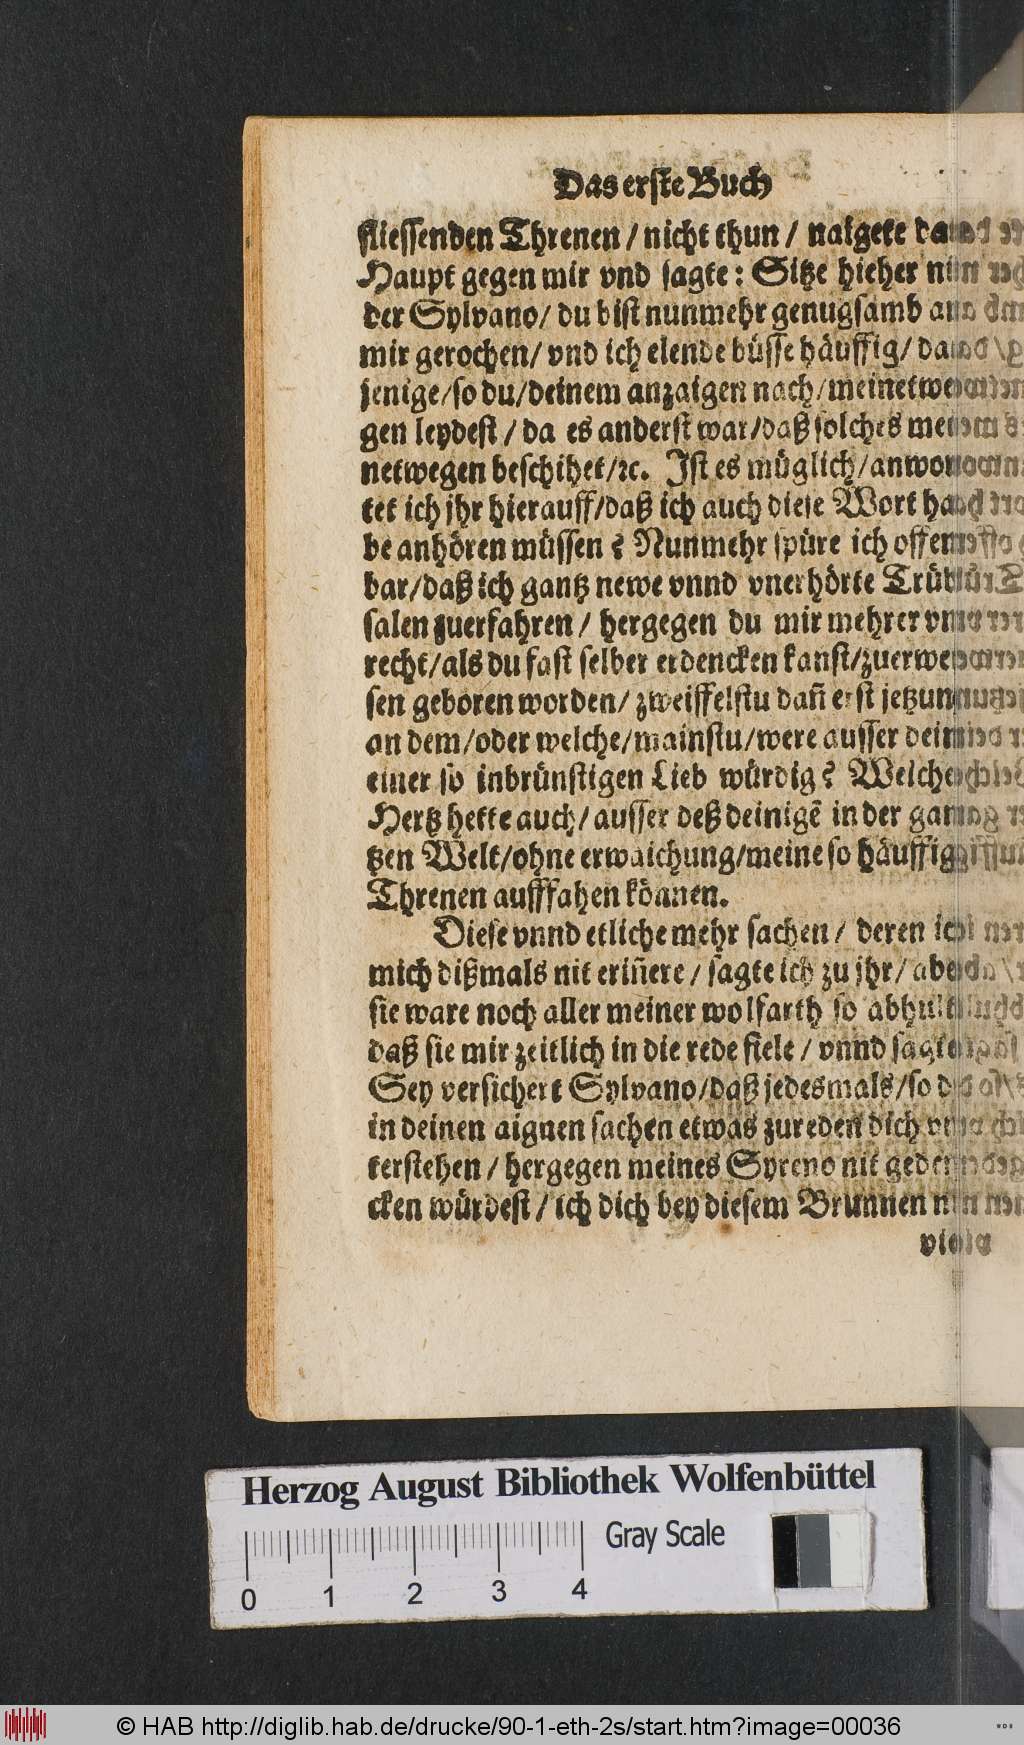 Das erste Buch
fliessenden Threnen / nicht thun / naigete das
Haupt gegen mir vnd sagte: Sitze hieher
der Sylvano / du bist nunmehr genugsamb an
mir gerochen / vnd ich elende büsse häuffig / da
jenige / so du / deinem anzaigen nach / meinetwe
gen leydest / da es anderst war / daß solches mei
netwegen beschihet / ꝛc. Ist es müglich / antwor
tet ich jhr hierauff / daß ich auch diese Wort ha
be anhören müssen? Nunmehr spüre ich offen
bar / daß ich gantz newe vnnd vnerhörte Trüb
salen zuerfahren / hergegen du mir mehrer vn
recht / als du fast selber erdencken kanst / zuerwei
sen geboren worden / zweiffelstu dañ erst jetzun
an dem / oder welche / mainstu / were ausser dein
einer so inbrünstigen Lieb würdig? Welches
Hertz hette auch / ausser deß deinigẽ in der gan
tzen Welt / ohne erwaichung / meine so häuffige
Threnen aufffahen können.
Diese vnnd etliche mehr sachen / deren ich
mich dißmals nit eriñere / sagte ich zu jhr / aber
sie ware noch aller meiner wolfarth so abhult
daß sie mir zeitlich in die rede fiele / vnnd sagte
Sey versichert Sylvano / daß jedesmals / so du
in deinen aignen sachen etwas zureden dich vn
terstehen / hergegen meines Syreno nit geden
cken würdest / ich dich bey diesem Brunnen
viola
Herzog August Bibliothek Wolfenbüttel
Gray Scale
0 1 2 3 4
© HAB http://diglib.hab.de/drucke/90-1-eth-2s/start.htm?image=00036